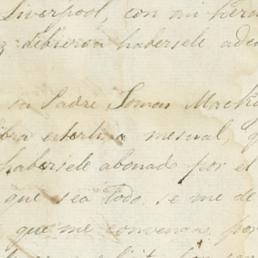 Liverpool, con mi herm
debieron habersele ade
su Padre Tomas Mach
bra esterlina mesual, q
habersele abonado por el
que sea todo se me de
que me convenga, por